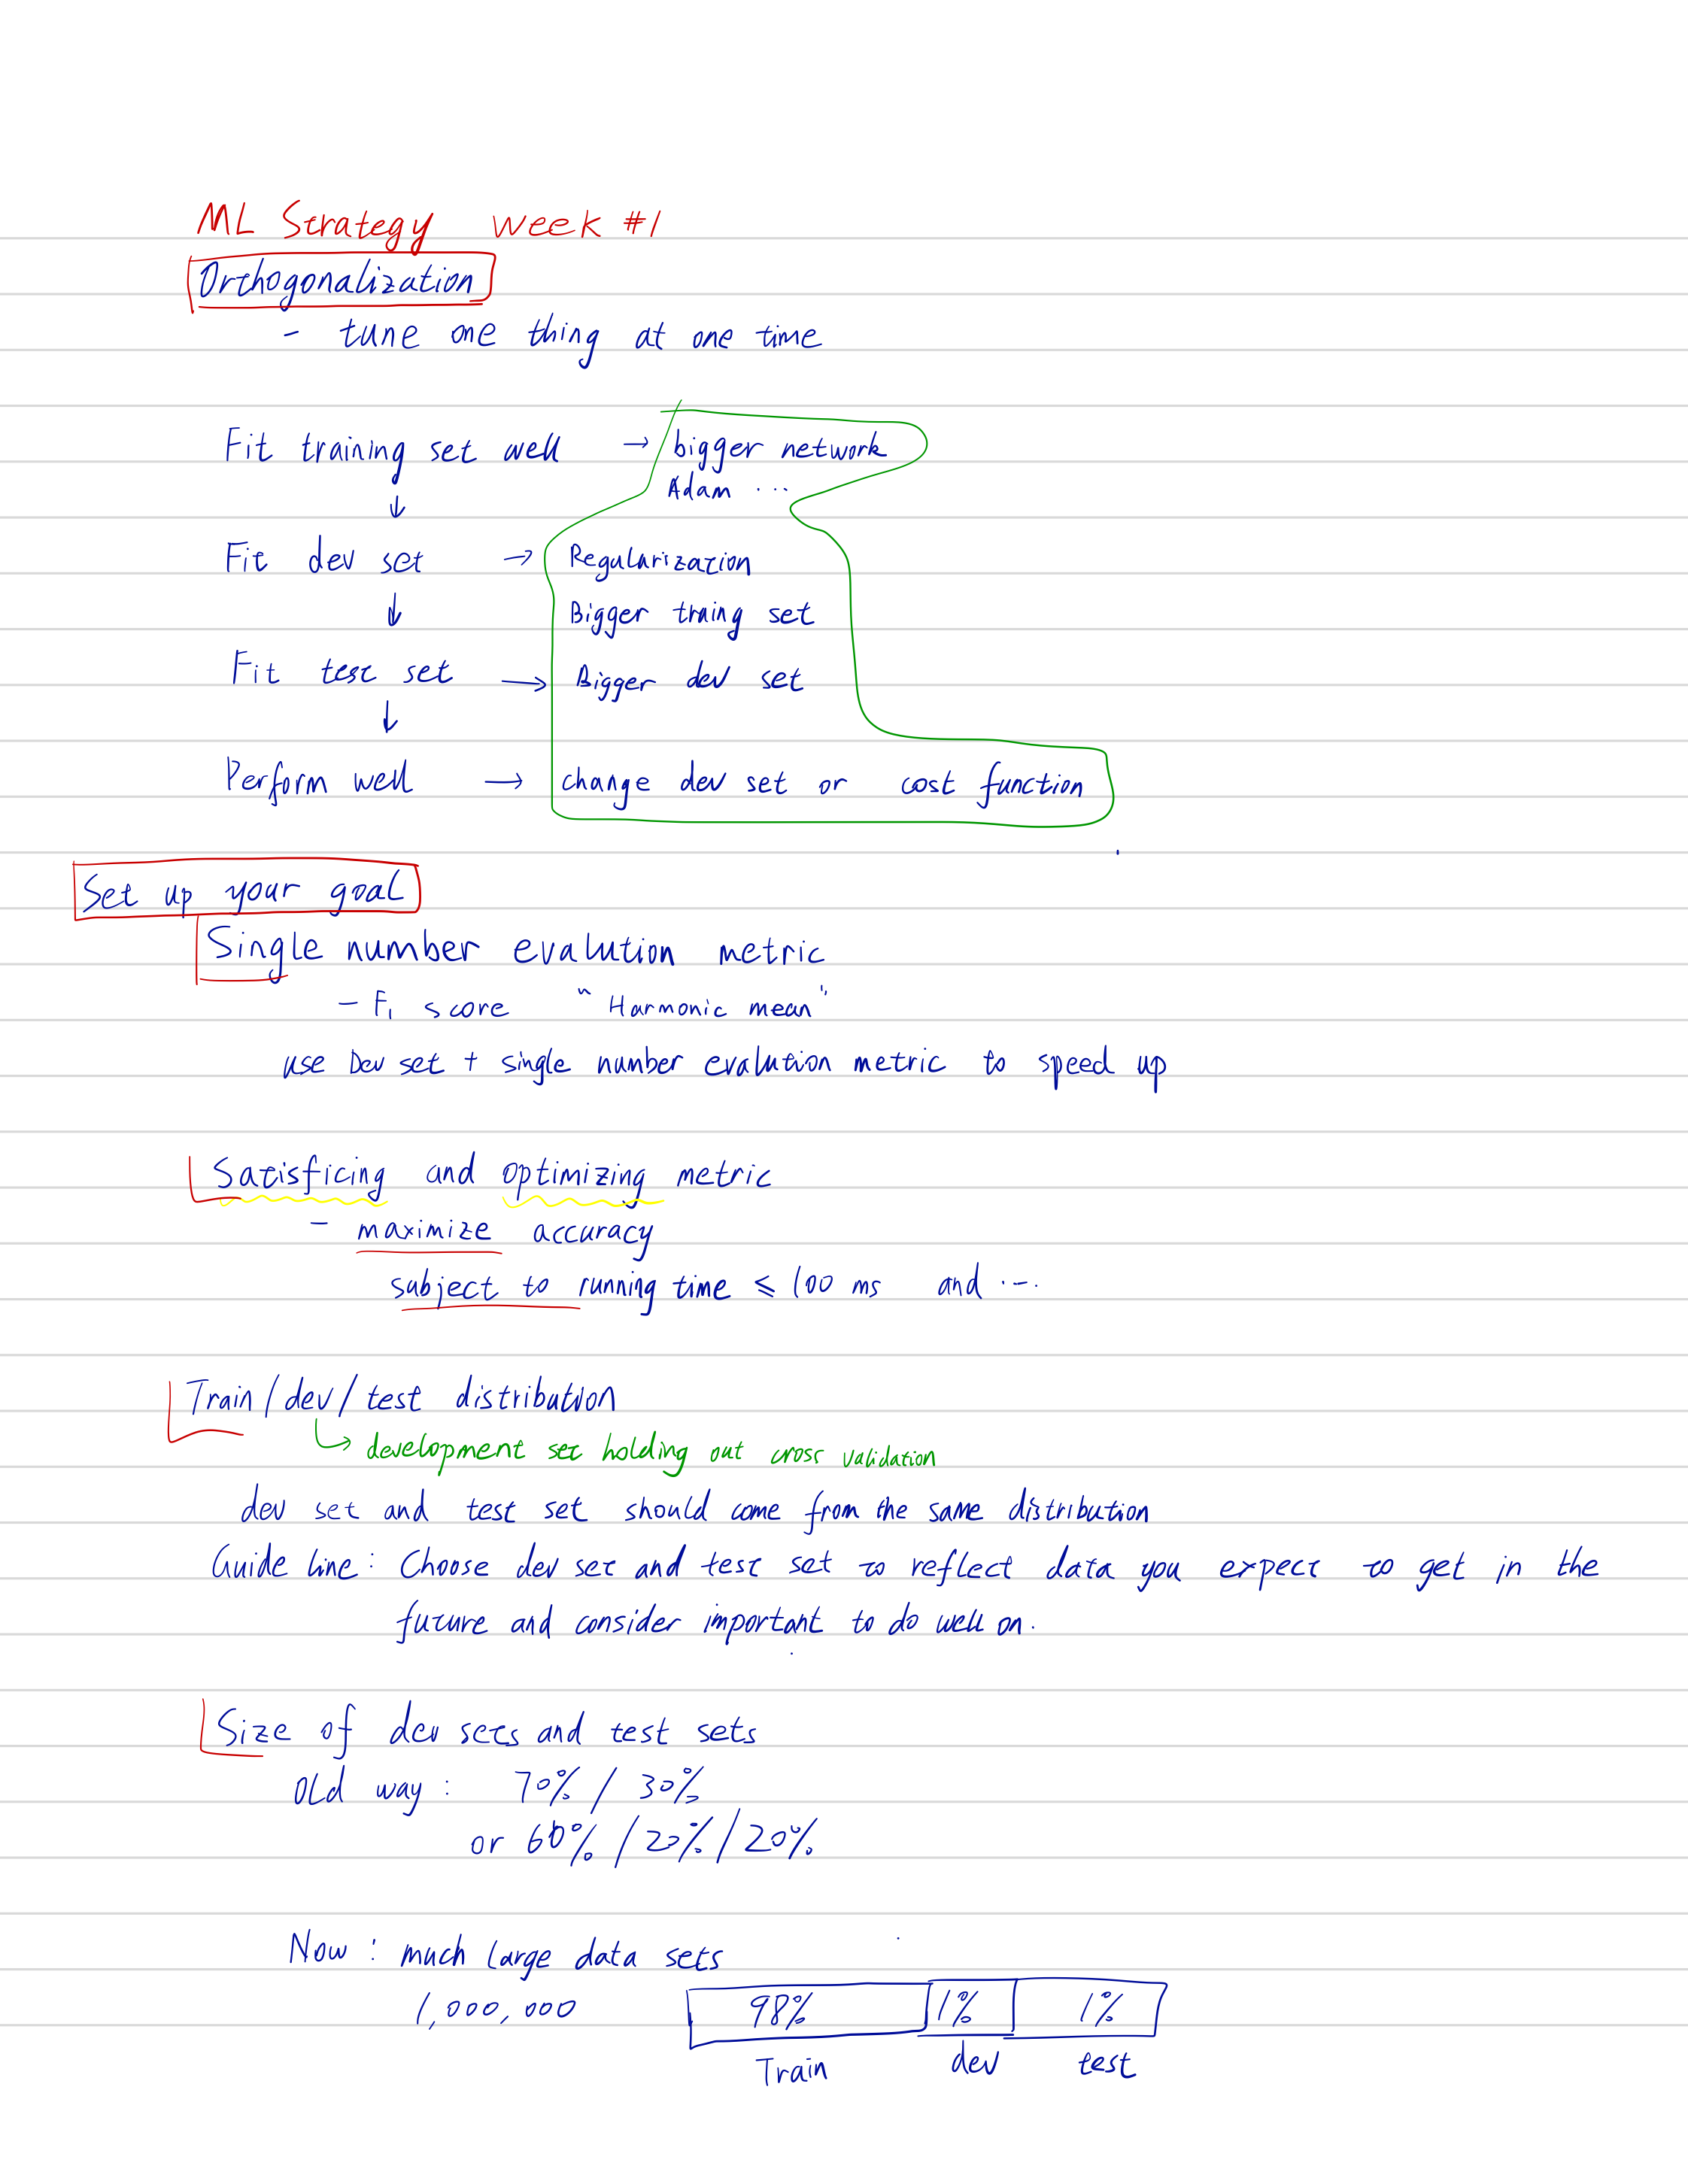 ML Strategy week #1
Orthogonalization
- tune one thing at one time
Fit training set well → bigger network
Adam ...
↓
Fit dev set → Regularization
↓ Bigger traing set
Fit test set → Bigger dev set
↓
Perform well → change dev set or cost function
Set up your goal
Single number evalution metric
- F₁ score "Harmonic mean"
use Dev set + single number evalution metric to speed up
Satisficing and optimizing metric
- maximize accuracy
subject to running time ≤ 100 ms and ...
Train/dev/test distribution
↳ development set holding out cross validation
dev set and test set should come from the same distribution
Guide line: Choose dev set and test set to reflect data you expect to get in the
future and consider important to do well on.
Size of dev sets and test sets
Old way: 70% / 30%
or 60% / 20% / 20%
Now: much large data sets
1,000,000 98% 1% 1%
Train dev test